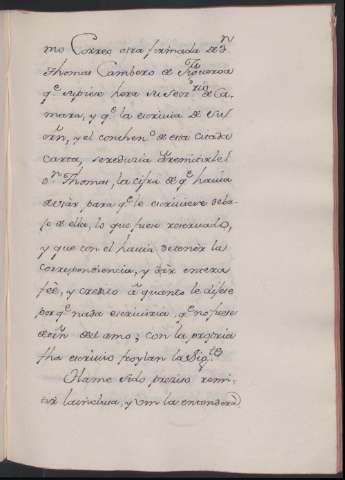 mo Correo otra firmada de D.n
Thomas Cambero de Figueroa
q.e supiese hera su Secr.rio de Ca-
mara, y q.e la escriuia de su
orñ, y el conthen.o de esta citada
Carta, se reducia â remitirle l
D.n Thomas, la cifra de q.e hauia
de usar para q.e le escriuiese deba-
jo de ella, lo que fuese reseruado,
y que con el hauia de tener la
correspondiencia, y dar entera
feê, y credito â quanto le dijese
porq.e nada escriuiria, q.e no fuese
de orñ del amo; con la propria
fha escriuio froylan la Sig.te
Hame sido preciso remi-
tir la inclusa, y Vm la entenderâ